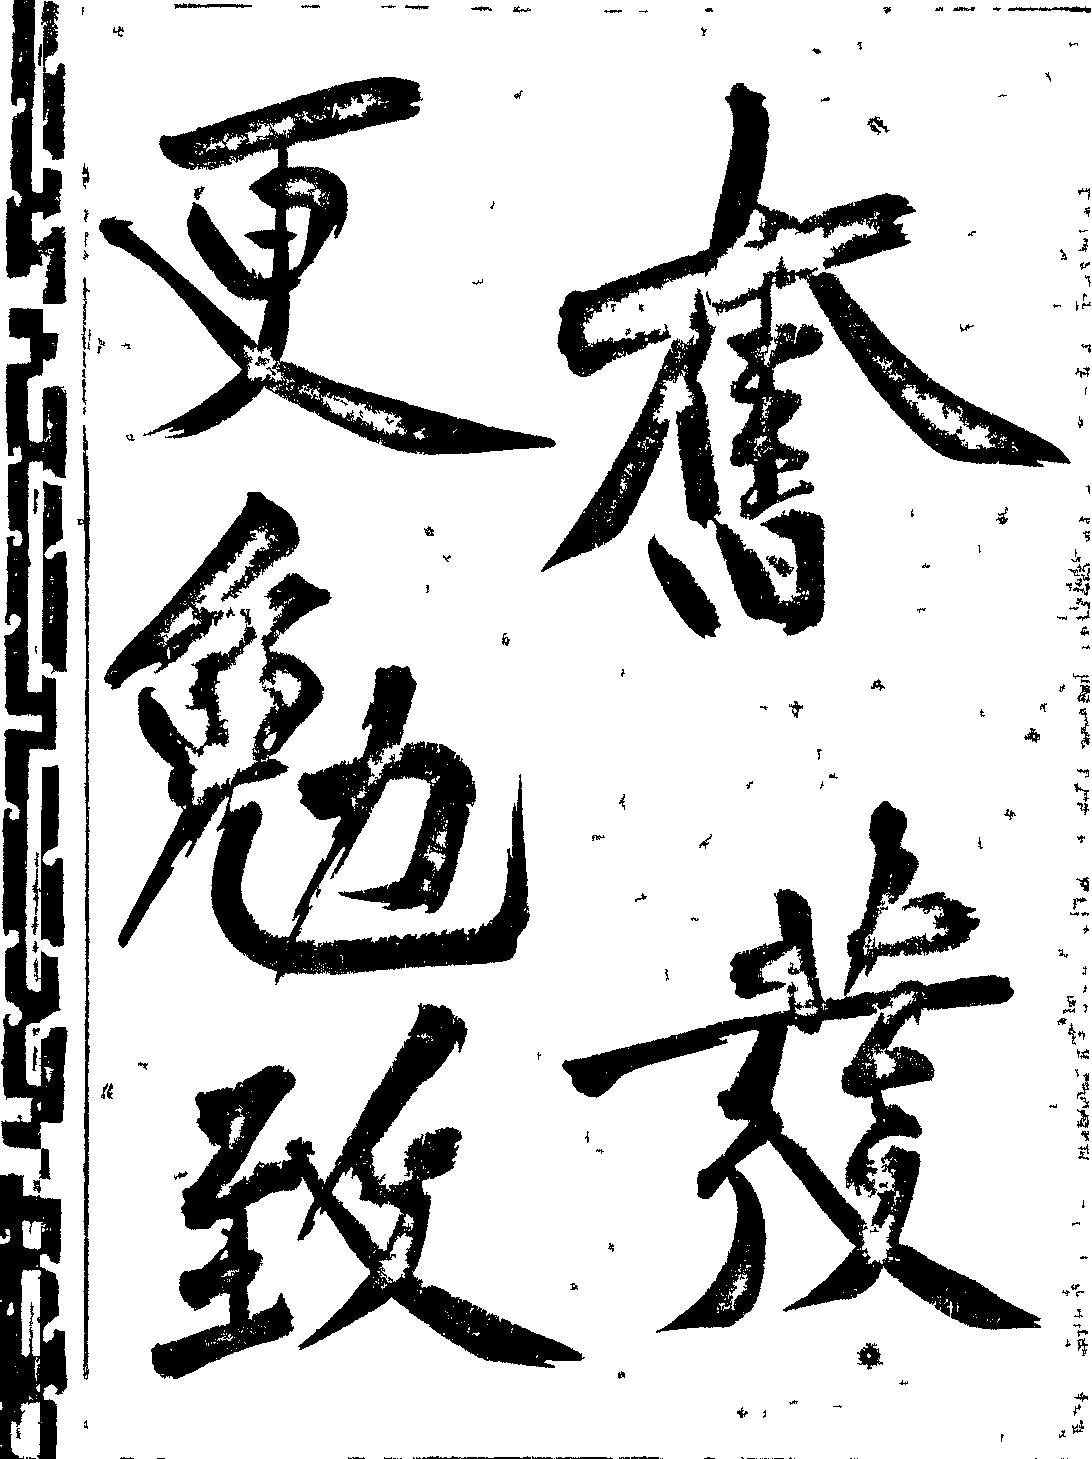 奮發
更勉致